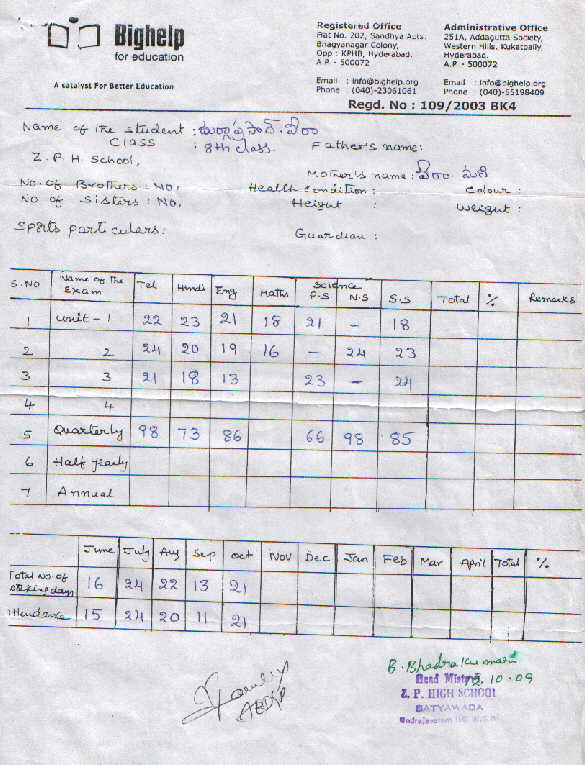 Bighelp
for education
A catalyst For Better Education
Registered Office
Flat No. 202, Sandhya Apts.
Bhagyanagar Colony,
Opp : KPHB, Hyderabad.
A.P - 500072
Email : info@bighelp.org
Phone (040)-23061081
Administrative Office
251A, Addagutta Society,
Western Hills, Kukatpally,
Hyderabad.
A.P - 500072
Email : info@bighelp.org
Phone (040)-55198409
Regd. No : 109/2003 BK4
Name of the student :
Class : 8th class. Father's name:
Z. P. H. School,
Mother's name :
No. of Brothers : No. Health condition : Colour :
No of Sisters : No. Height : Weight :
Sports particulers: Guardian :
S.NO Name of the Exam Tel Hindi Eng Maths Science P.S N.S S.S Total % Remarks
1 Unit - 1 22 23 21 18 21 - 18
2 2 24 20 19 16 - 24 23
3 3 21 18 13 23 - 24
4 4
5 Quarterly 98 73 86 66 98 85
6 Half yearly
7 Annual
June July Aug Sep Oct Nov Dec Jan Feb Mar April Total %
Total No. of 16 24 22 13 21
Attendance 15 24 20 11 21
B. Bhadra Kumari
10.09
Z. P. HIGH SCHOOL
SATYAWADA